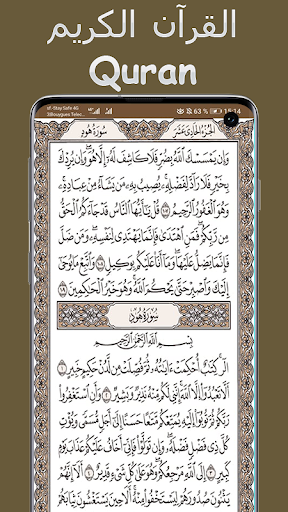 القرآن الكريم
Quran
st-Stay Safe 4G
3|Bouygues Telec...
63 %
15:14
الجزء الحادي عشر
سورة هود
وَإِن يَمْسَسْكَ ٱللَّهُ بِضُرٍّ فَلَا كَاشِفَ لَهُۥٓ إِلَّا هُوَ وَإِن يُرِدْكَ
بِخَيْرٍ فَلَا رَآدَّ لِفَضْلِهِۦ يُصِيبُ بِهِۦ مَن يَشَآءُ مِنْ عِبَادِهِۦ
وَهُوَ ٱلْغَفُورُ ٱلرَّحِيمُ ١٠٧ قُلْ يَٰٓأَيُّهَا ٱلنَّاسُ قَدْ جَآءَكُمُ ٱلْحَقُّ
مِن رَّبِّكُمْ فَمَنِ ٱهْتَدَىٰ فَإِنَّمَا يَهْتَدِى لِنَفْسِهِۦ وَمَن ضَلَّ
فَإِنَّمَا يَضِلُّ عَلَيْهَا وَمَآ أَنَا۠ عَلَيْكُم بِوَكِيلٍ ١٠٨ وَٱتَّبِعْ مَا يُوحَىٰٓ
إِلَيْكَ وَٱصْبِرْ حَتَّىٰ يَحْكُمَ ٱللَّهُ وَهُوَ خَيْرُ ٱلْحَٰكِمِينَ ١٠٩
سُورَةُ هُودٍ
بِسْمِ ٱللَّهِ ٱلرَّحْمَٰنِ ٱلرَّحِيمِ
الٓر كِتَٰبٌ أُحْكِمَتْ ءَايَٰتُهُۥ ثُمَّ فُصِّلَتْ مِن لَّدُنْ حَكِيمٍ خَبِيرٍ ١
أَلَّا تَعْبُدُوٓا۟ إِلَّا ٱللَّهَ إِنَّنِى لَكُم مِّنْهُ نَذِيرٌ وَبَشِيرٌ ٢ وَأَنِ ٱسْتَغْفِرُوا۟
رَبَّكُمْ ثُمَّ تُوبُوٓا۟ إِلَيْهِ يُمَتِّعْكُم مَّتَٰعًا حَسَنًا إِلَىٰٓ أَجَلٍ مُّسَمًّى وَيُؤْتِ
كُلَّ ذِى فَضْلٍ فَضْلَهُۥ وَإِن تَوَلَّوْا۟ فَإِنِّىٓ أَخَافُ عَلَيْكُمْ عَذَابَ يَوْمٍ
كَبِيرٍ ٣ إِلَى ٱللَّهِ مَرْجِعُكُمْ وَهُوَ عَلَىٰ كُلِّ شَىْءٍ قَدِيرٌ ٤ أَلَآ إِنَّهُمْ
يَثْنُونَ صُدُورَهُمْ لِيَسْتَخْفُوا۟ مِنْهُ أَلَا حِينَ يَسْتَغْشُونَ ثِيَابَهُمْ